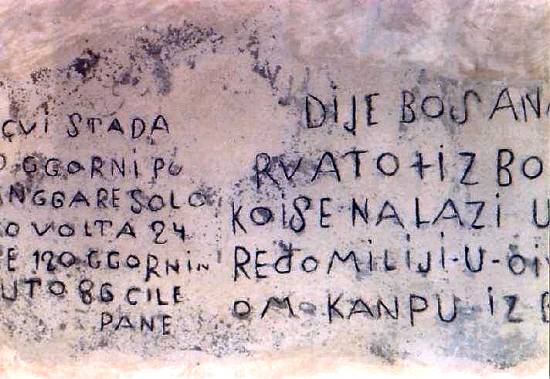 QVI STADA
GGORNI PO
NGGARE SOLO
VOLTA 24
E 120 GGORNIN
UTO 86 CILE
PANE
DIJE BOSANA
RVATO+IZ BO
KOISE NALAZI U
REDOMILIJI-U-OIV
OMO KANPU IZ B